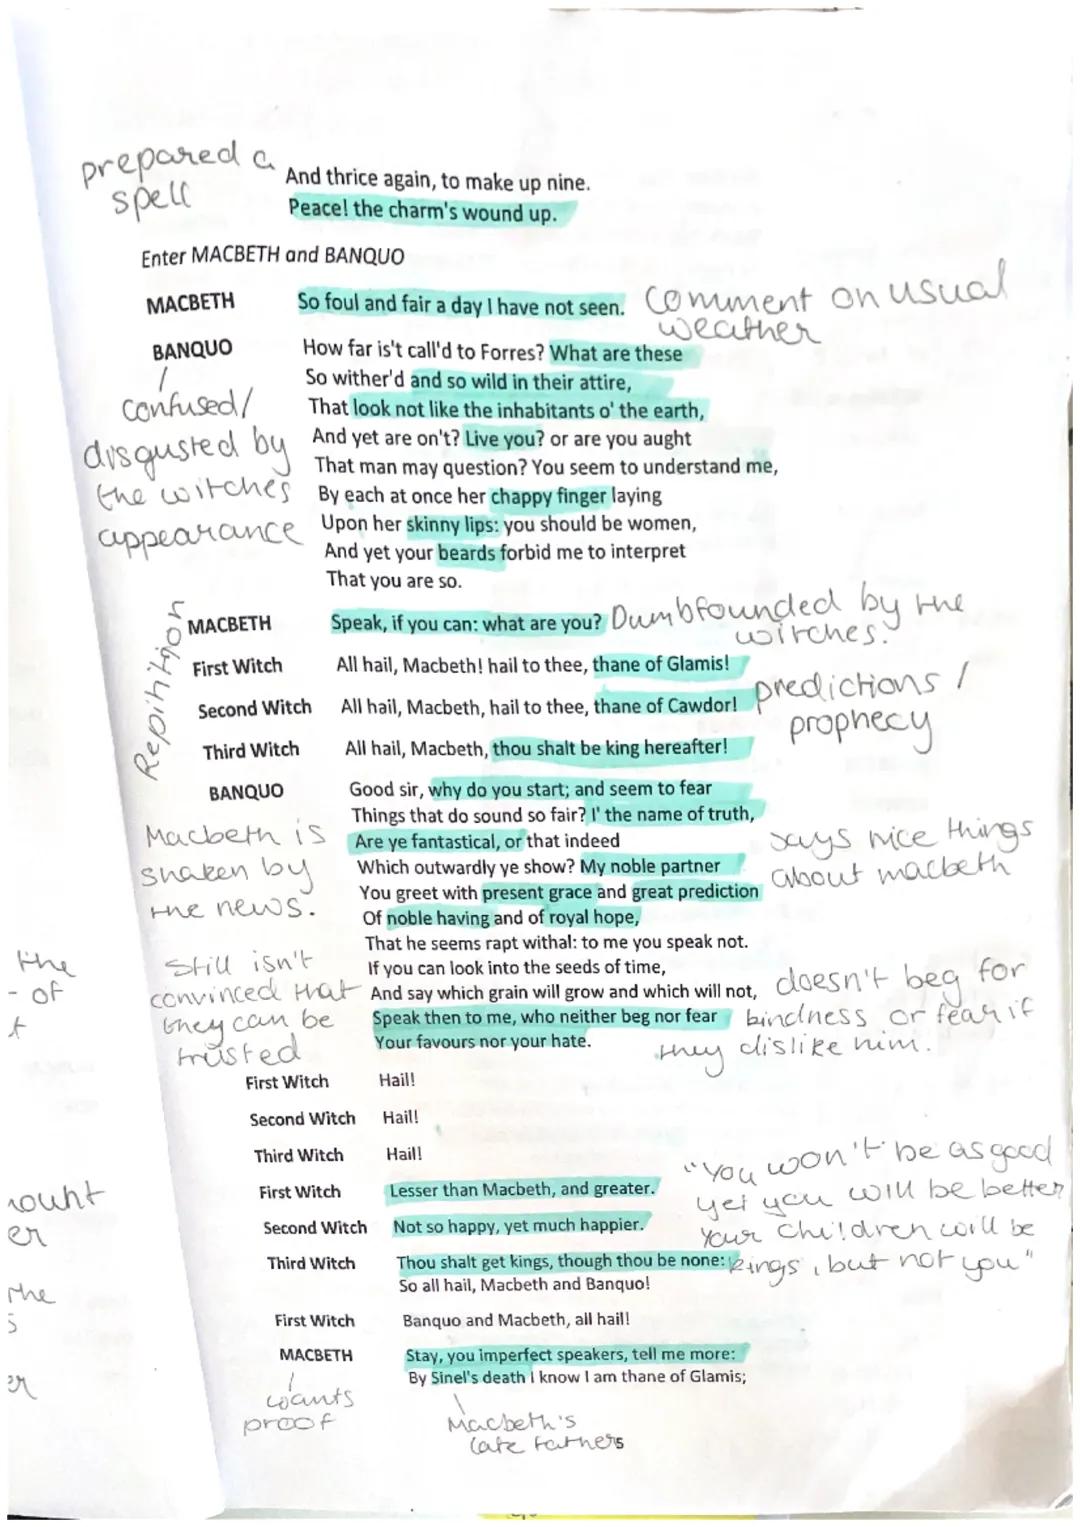 prepared a
spell
And thrice again, to make up nine.
Peace! the charm's wound up.
Enter MACBETH and BANQUO
MACBETH So foul and fair a day I have not seen.
Comment on usual
weather
BANQUO How far is't call'd to Forres? What are these
So wither'd and so wild in their attire,
That look not like the inhabitants o' the earth,
And yet are on't? Live you? or are you aught
That man may question? You seem to understand me,
By each at once her chappy finger laying
Upon her skinny lips: you should be women,
And yet your beards forbid me to interpret
That you are so.
confused/
disgusted by
the witches
appearance
MACBETH Speak, if you can: what are you?
Dumbfounded by the
witches.
Repitition
First Witch All hail, Macbeth! hail to thee, thane of Glamis!
Second Witch All hail, Macbeth, hail to thee, thane of Cawdor!
Third Witch All hail, Macbeth, thou shalt be king hereafter!
predictions /
prophecy
BANQUO Good sir, why do you start; and seem to fear
Things that do sound so fair? I' the name of truth,
Are ye fantastical, or that indeed
Which outwardly ye show? My noble partner
You greet with present grace and great prediction
Of noble having and of royal hope,
That he seems rapt withal: to me you speak not.
If you can look into the seeds of time,
And say which grain will grow and which will not,
Speak then to me, who neither beg nor fear
Your favours nor your hate.
Macbeth is
shaken by
the news.
says nice things
about macbeth
Still isn't
convinced that
they can be
trusted
doesn't beg for
kindness or fear if
they dislike him.
First Witch Hail!
Second Witch Hail!
Third Witch Hail!
First Witch Lesser than Macbeth, and greater.
Second Witch Not so happy, yet much happier.
Third Witch Thou shalt get kings, though thou be none:
So all hail, Macbeth and Banquo!
"You won't be as good
yet you will be better
Your children will be
kings, but not you"
First Witch Banquo and Macbeth, all hail!
MACBETH Stay, you imperfect speakers, tell me more:
By Sinel's death I know I am thane of Glamis;
wants
proof
Macbeth's
late fathers
the
- of
the
er